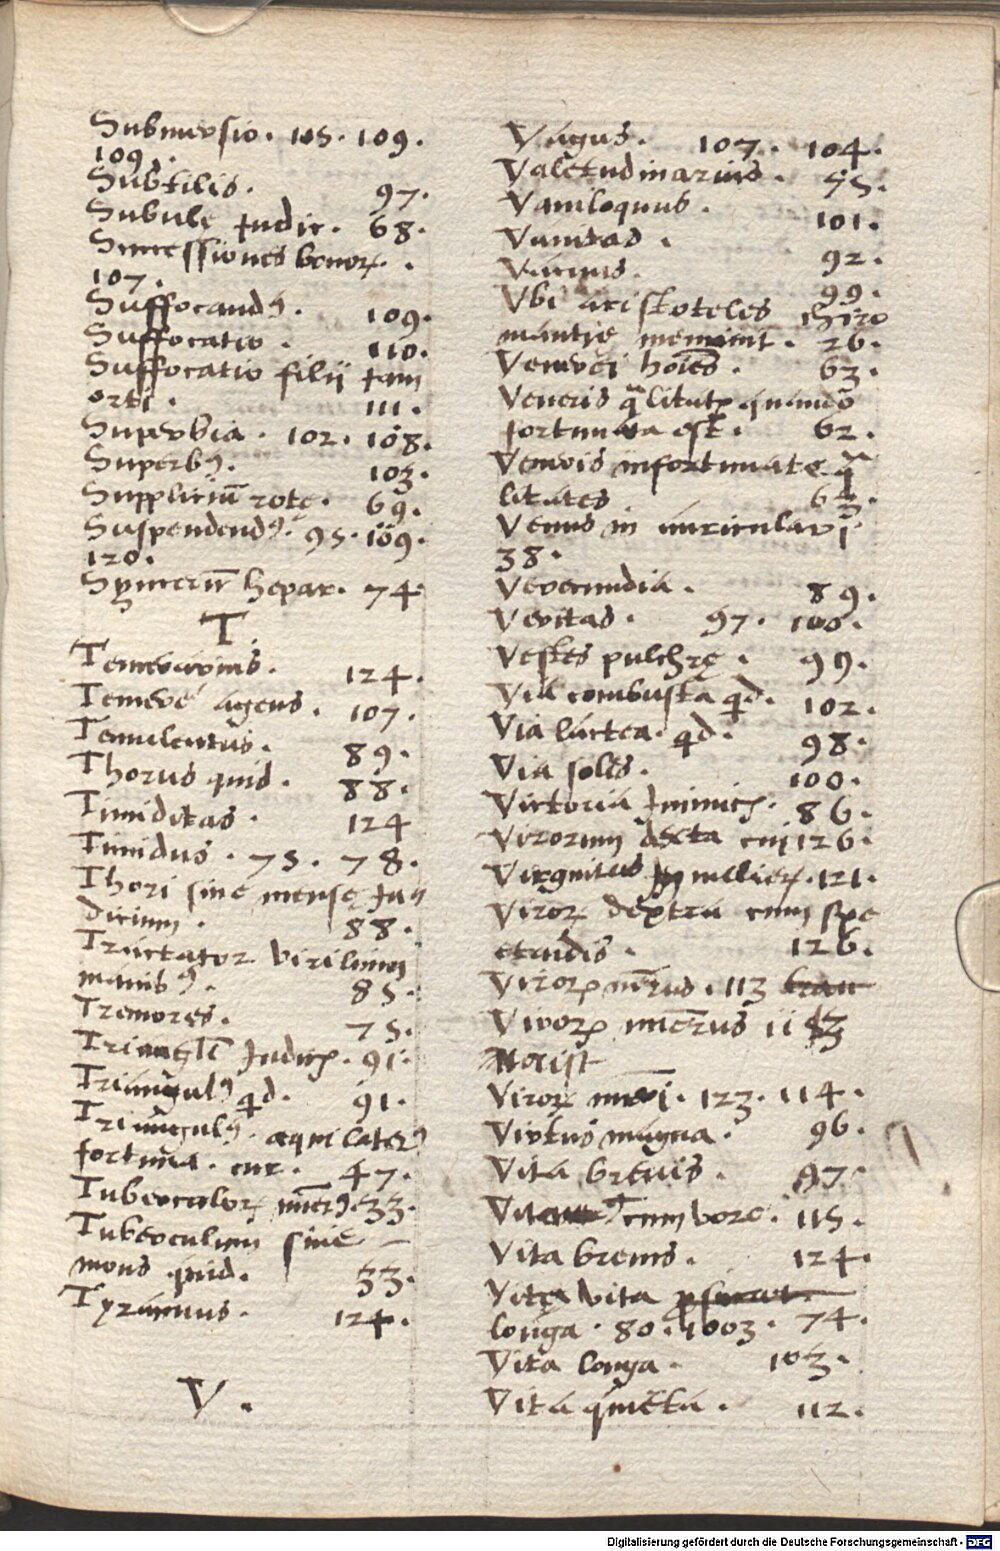 Submersio. 105. 109.
109.
Subtilis. 97.
Subule Iudic. 68.
Successiones bonoꝝ.
107.
Suffocandꝯ. 109.
Suffocatio. 110.
Suffocatio filij tam
orti. 111.
Superbia. 102. 108.
Superbꝯ. 103.
Suppliciū rotę. 69.
Suspendendꝯ. 95. 109.
120.
hepar. 74
T.
Temerarius. 124.
Temere agens. 107.
Temulentus. 89.
Thorus quid. 88.
Timiditas. 124
Timidus. 75. 78.
Thori sine mensę Iu
dicium. 88.
Tractator virilium
manibꝯ. 85.
Tremores. 75.
Triangli Iudic. 91.
Triangulꝯ qd. 91.
Triangulꝯ aequilaterꝯ
fortuna. cur. 47.
Tuberculoꝝ nūerꝯ. 33.
Tuberculum sine
mons quid. 33.
Tyrannus. 124.
V.
Vagus. 107. 104.
Valetudinarius. 55.
Vaniloquus. 101.
Vanitas. 92.
Varius. 99.
Vbi aristoteles chiro
mantię meminit. 26.
Venerei hoīes. 63.
Veneris qualitatꝭ quando
fortunata est. 62.
Veneris infortunate qua
litates 62.
Venus in auriculari
38.
Verecundia. 89.
Veritas. 97. 100.
Vestes pulchrę. 99.
Via combusta qd. 102.
Via lactea. qd. 98.
Via solis. 100.
Victoria Inimicꝝ. 86.
Virorum dexta cui 126.
Virginitas mulieꝝ. 121.
Viroꝝ dextra cum spe
ctandis. 126.
Viroꝝ nūerus. 113
Viroꝝ numerus 113
Viroꝝ 123. 114.
Virtus magna. 96.
Vita brevis. 97.
Vita cum 115.
Vita brevis. 124.
Vita vita
longa. 80. 1003. 74.
Vita longa. 103.
Vita quieta. 112.
Digitalisierung gefördert durch die Deutsche Forschungsgemeinschaft - DFG